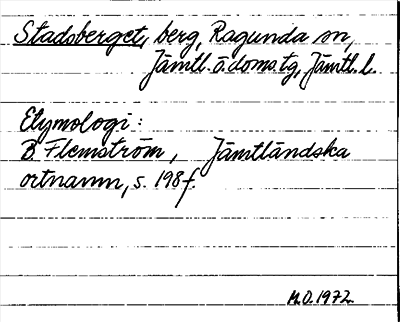 Stadsberget, berg, Ragunda sn,
Jämtl. ö. doms. tg, Jämtl. l.
Etymologi:
B. Flemström, Jämtländska
ortnamn, s. 198 f.
M.O. 1972